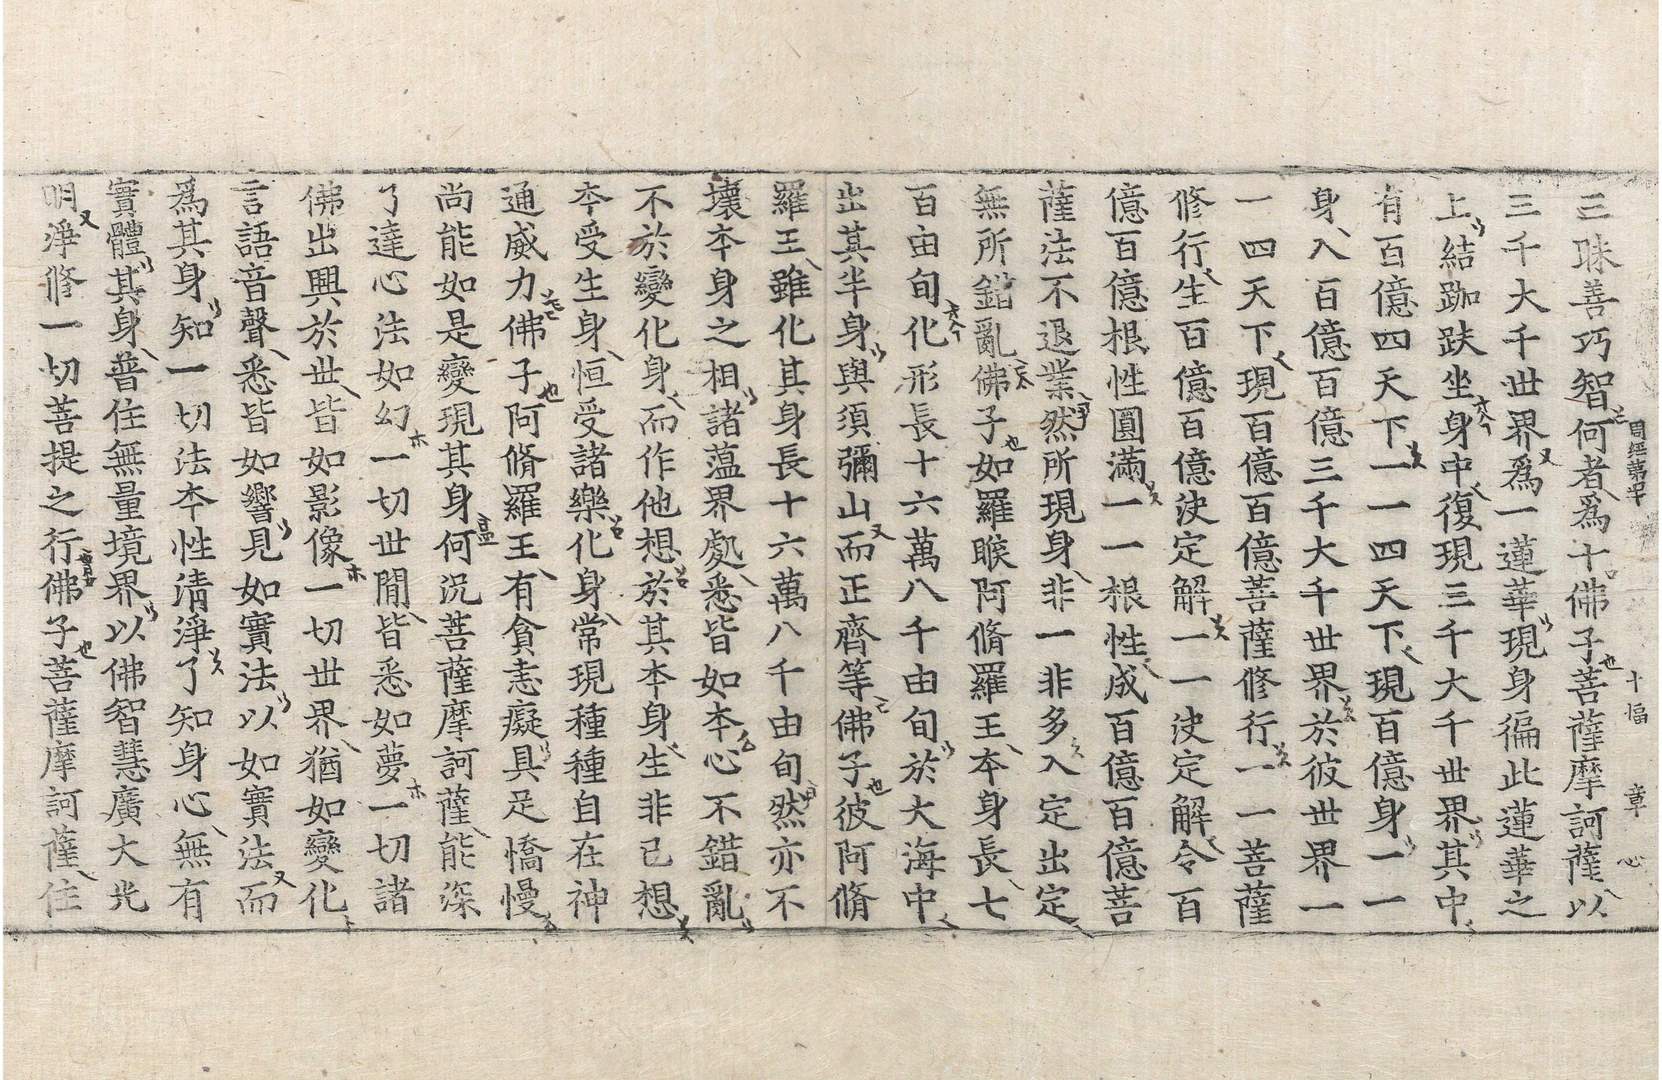 周經第四十 十幅 章 心
三昧善巧智何者爲十佛子菩薩摩訶薩以
三千大千世界爲一蓮華現身徧此蓮華之
上結跏趺坐身中復現三千大千世界其中
有百億四天下一一四天下現百億身一一
身入百億百億三千大千世界於彼世界一
一四天下現百億百億菩薩修行一一菩薩
修行生百億百億決定解一一決定解令百
億百億根性圓滿一一根性成百億百億菩
薩法不退業然所現身非一非多入定出定
無所錯亂佛子如羅睺阿脩羅王本身長七
百由旬化形長十六萬八千由旬於大海中
出其半身與須彌山而正齊等佛子彼阿脩
羅王雖化其身長十六萬八千由旬然亦不
壞本身之相諸蘊界處悉皆如本心不錯亂
不於變化身而作他想於其本身生非己想
本受生身恒受諸樂化身常現種種自在神
通威力佛子阿脩羅王有貪恚癡具足憍慢
尚能如是變現其身何況菩薩摩訶薩能深
了達心法如幻一切世間皆悉如夢一切諸
佛出興於世皆如影像一切世界猶如變化
言語音聲悉皆如響見如實法以如實法而
爲其身知一切法本性清淨了知身心無有
實體其身普住無量境界以佛智慧廣大光
明淨修一切菩提之行佛子菩薩摩訶薩住